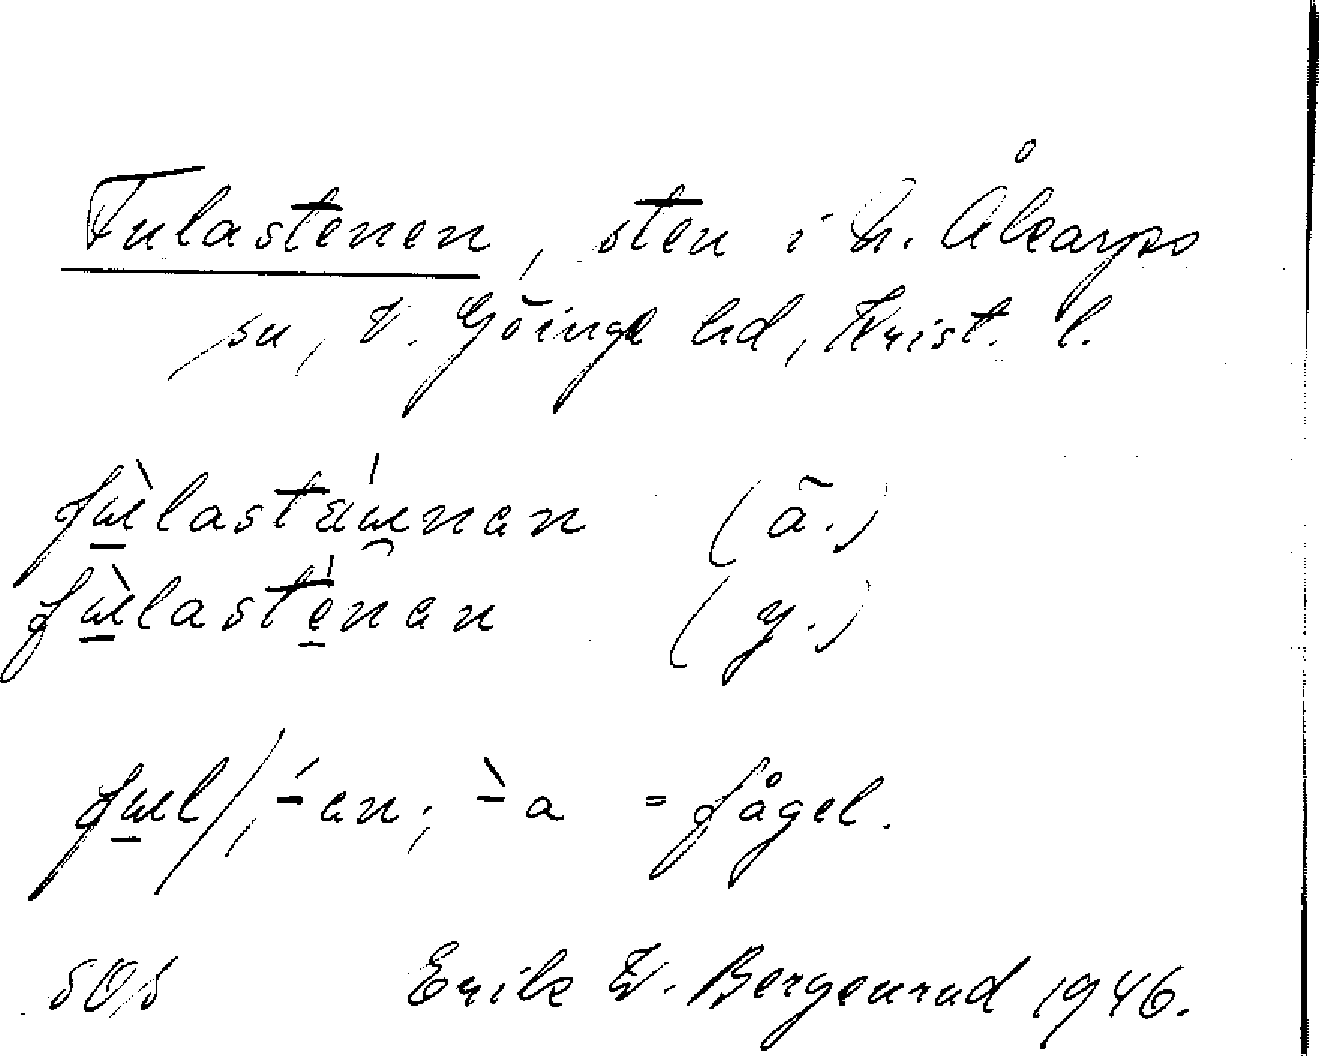 Fulastenen, sten i N. Åkarps
sn, V. Göinge hd, Krist. l.
fɯ̱̀lastæɯ̯́nan (ä.)
fɯ̱̀lasté̱nan (y.)
fɯ̱l/, -́en; -̀a = fågel.
Erik W. Bergenrud 1946.